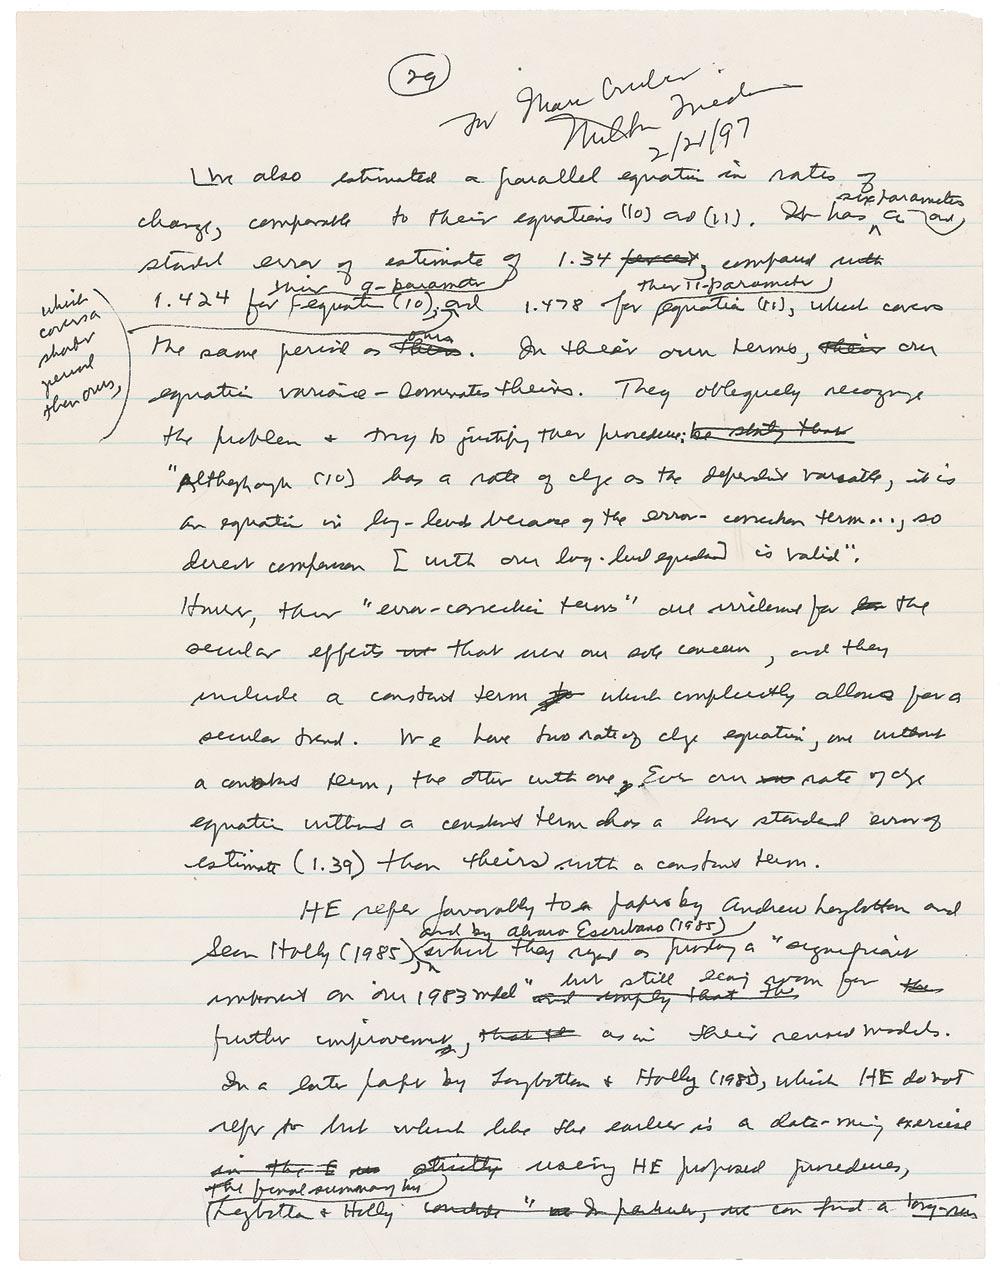 29
For Marc
Milton Friedman
2/21/97
We also estimated a parallel equation in rates of
change, comparable to their equations (10) and (11). It has a six parameter and,
standard error of estimate of 1.34 percent, compared with
1.424 for their 9-parameter equation (10), and 1.478 for their 11-parameter equation (11), which covers
which
covers a
shorter
period
than ours,
the same period as theirs ours. In their own terms, their our
equation variance-dominates theirs. They obliquely recognize
the problem & try to justify their procedure: be stating that
"Although (10) has a rate of chge as the dependent variable, it is
an equation in log-levels because of the error-correction term..., so
direct comparison [with our log-level equation] is valid".
However, their "error-correction terms" are irrelevant for the
secular effects that were our sole concern, and they
include a constant term which implicitly allows for a
secular trend. We have two rate of chge equation, one without
a constant term, the other with one. Even our rate of chge
equation without a constant term has a lower standard error of
estimate (1.39) than theirs with a constant term.
HE refer favorably to a paper by Andrew Longbottom and
Sean Holly (1985) and by Alvaro Escribano (1985) which they regard as providing a "significant
improvement on our 1983 model" and imply that the but still leaving room for the
further improvement, as in their revised models.
In a later paper by Longbottom & Holly (1985), which HE do not
refer to but which like the earlier is a data-mining exercise
in the E strictly using HE proposed procedures,
the final summary by
Longbottom & Holly conclude "In particular, we can find a long-run